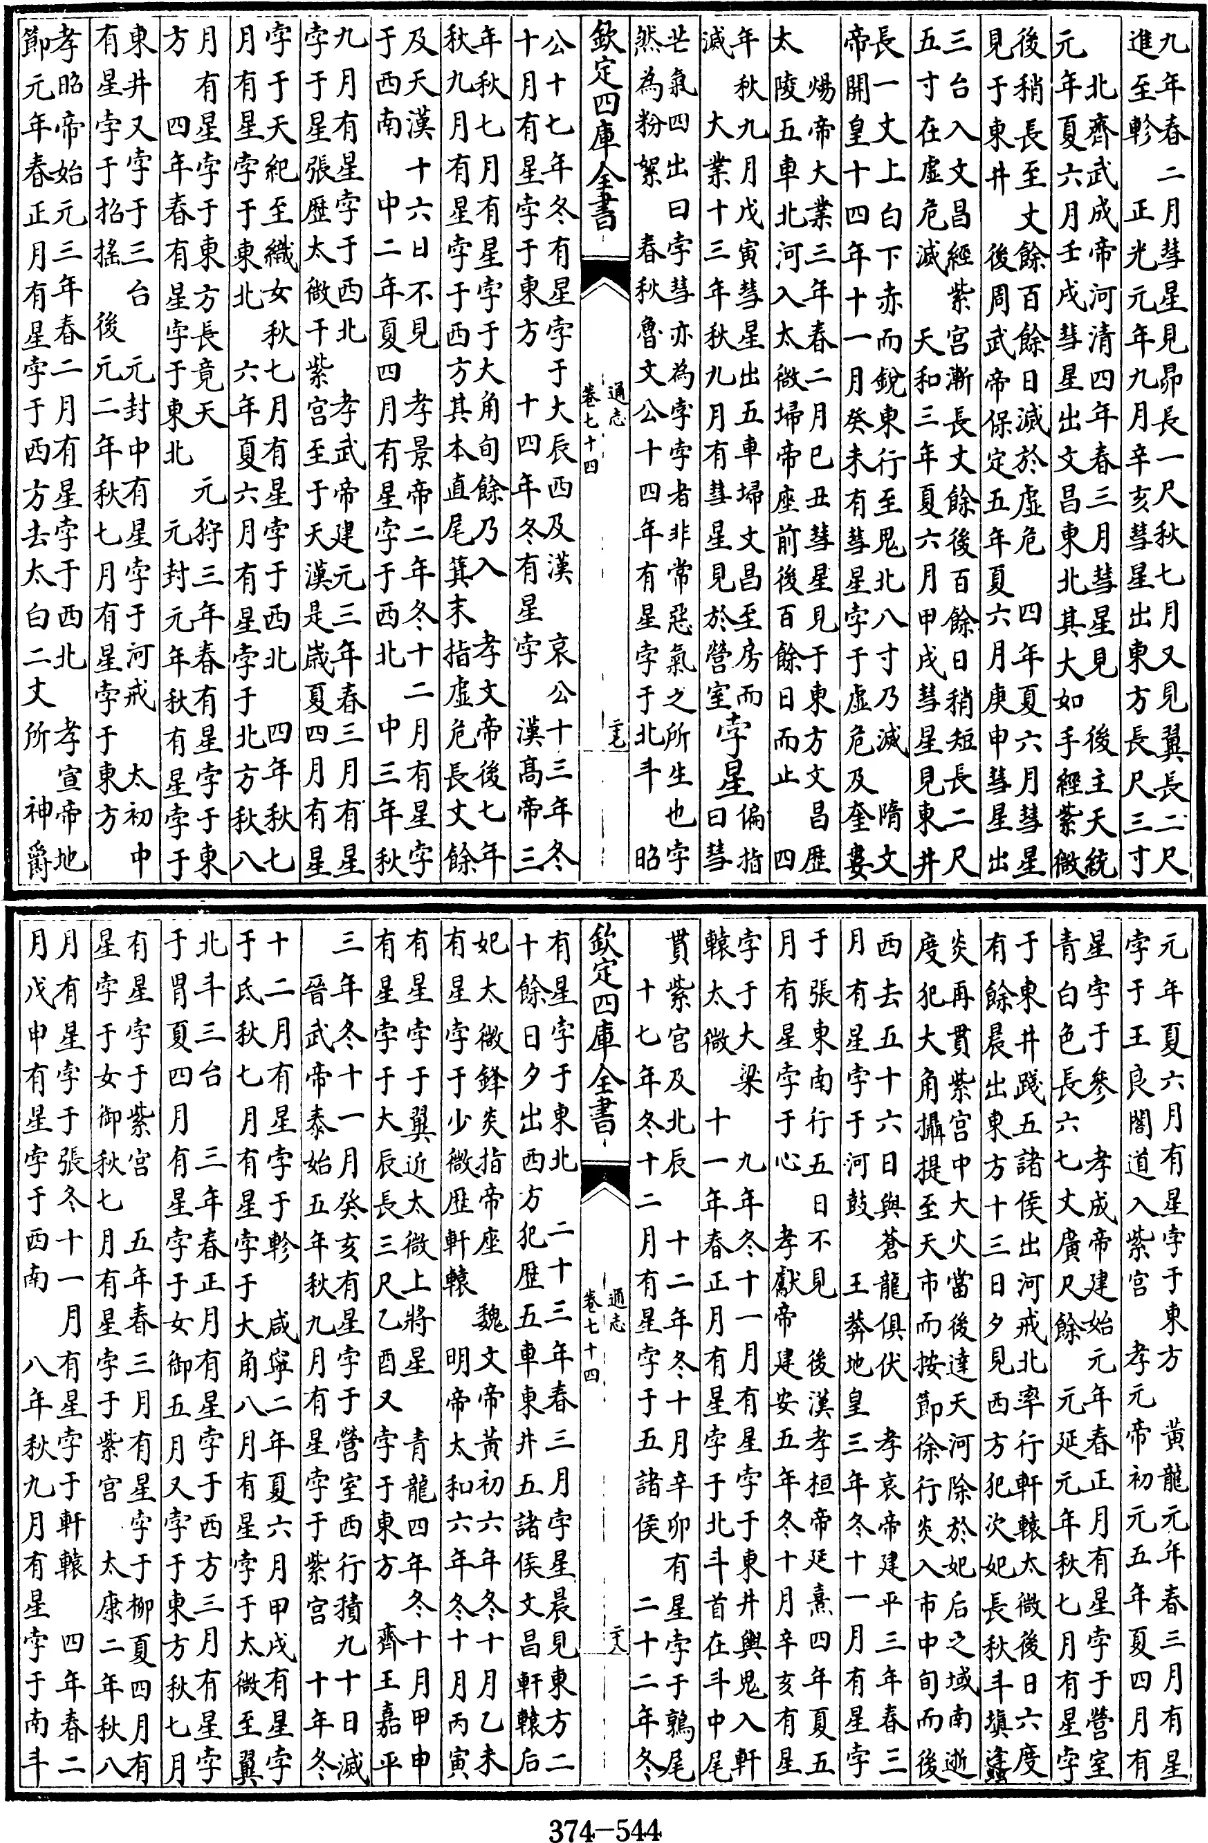 九年春二月彗星見昴長一尺秋七月又見翼長二尺
進至軫　正光元年九月辛亥彗星出東方長尺三寸
　北齊武成帝河清四年春三月彗星見　後主天統
元年夏六月壬戌彗星出文昌東北其大如手經紫微
後稍長至丈餘百餘日滅於虛危　四年夏六月彗星
見于東井　後周武帝保定五年夏六月庚申彗星出
三台入文昌經紫宮漸長丈餘後百餘日稍短長二尺
五寸在虛危滅　天和三年夏六月甲戌彗星見東井
長一丈上白下赤而銳東行至鬼北八寸乃滅　隋文
帝開皇十四年十一月癸未有彗星孛于虛危及奎婁
　煬帝大業三年春二月己丑彗星見于東方文昌歷
太陵五車北河入太微埽帝座前後百餘日而止　四
年秋九月戊寅彗星出五車埽文昌至房而
滅　大業十三年秋九月有彗星見於營室
孛星
偏指
曰彗
芒氣四出曰孛彗亦為孛孛者非常惡氣之所生也孛
然為粉絮　春秋魯文公十四年有星孛于北斗　昭
欽定四庫全書
通志
卷七十四
二七
公十七年冬有星孛于大辰西及漢　哀公十三年冬
十月有星孛于東方　十四年冬有星孛　漢高帝三
年秋七月有星孛于大角旬餘乃入　孝文帝後七年
秋九月有星孛于西方其本直尾箕末指虛危長丈餘
及天漢十六日不見　孝景帝二年冬十二月有星孛
于西南　中二年夏四月有星孛于西北　中三年秋
九月有星孛于西北　孝武帝建元三年春三月有星
孛于星張歷太微干紫宮至于天漢是歲夏四月有星
孛于天紀至織女秋七月有星孛于西北　四年秋七
月有星孛于東北　六年夏六月有星孛于北方秋八
月有星孛于東方長竟天　元狩三年春有星孛于東
方　四年春有星孛于東北　元封元年秋有星孛于
東井又孛于三台　元封中有星孛于河戒　太初中
有星孛于招搖　後元二年秋七月有星孛于東方
孝昭帝始元三年春二月有星孛于西北　孝宣帝地
節元年春正月有星孛于西方去太白二丈所　神爵
元年夏六月有星孛于東方　黃龍元年春三月有星
孛于王良閣道入紫宮　孝元帝初元五年夏四月有
星孛于參　孝成帝建始元年春正月有星孛于營室
青白色長六七丈廣尺餘　元延元年秋七月有星孛
于東井踐五諸侯出河戒北率行軒轅太微後日六度
有餘晨出東方十三日夕見西方犯次妃長秋斗填蠭
炎再貫紫宮中大火當後達天河除於妃后之域南逝
度犯大角攝提至天市而按節徐行炎入市中旬而後
西去五十六日與蒼龍俱伏　孝哀帝建平三年春三
月有星孛于河鼓　王莽地皇三年冬十一月有星孛
于張東南行五日不見　後漢孝桓帝延熹四年夏五
月有星孛于心　孝獻帝建安五年冬十月辛亥有星
孛于大梁　九年冬十一月有星孛于東井輿鬼入軒
轅太微　十一年春正月有星孛于北斗首在斗中尾
貫紫宮及北辰　十二年冬十月辛卯有星孛于鶉尾
　十七年冬十二月有星孛于五諸侯　二十二年冬
欽定四庫全書
通志
卷七十四
二八
有星孛于東北　二十三年春三月孛星晨見東方二
十餘日夕出西方犯歷五車東井五諸侯文昌軒轅后
妃太微鋒炎指帝座　魏文帝黃初六年冬十月乙未
有星孛于少微歷軒轅　明帝太和六年冬十月丙寅
有星孛于翼近太微上將星　青龍四年冬十月甲申
有星孛于大辰長三尺乙酉又孛于東方　齊王嘉平
三年冬十一月癸亥有星孛于營室西行積九十日滅
　晉武帝泰始五年秋九月有星孛于紫宮　十年冬
十二月有星孛于軫　咸寧二年夏六月甲戌有星孛
于氐秋七月有星孛于大角八月有星孛于太微至翼
北斗三台　三年春正月有星孛于西方三月有星孛
于胃夏四月有星孛于女御五月又孛于東方秋七月
有星孛于紫宮　五年春三月有星孛于柳夏四月有
星孛于女御秋七月有星孛于紫宮　太康二年秋八
月有星孛于張冬十一月有星孛于軒轅　四年春二
月戊申有星孛于西南　八年秋九月有星孛于南斗
374-544